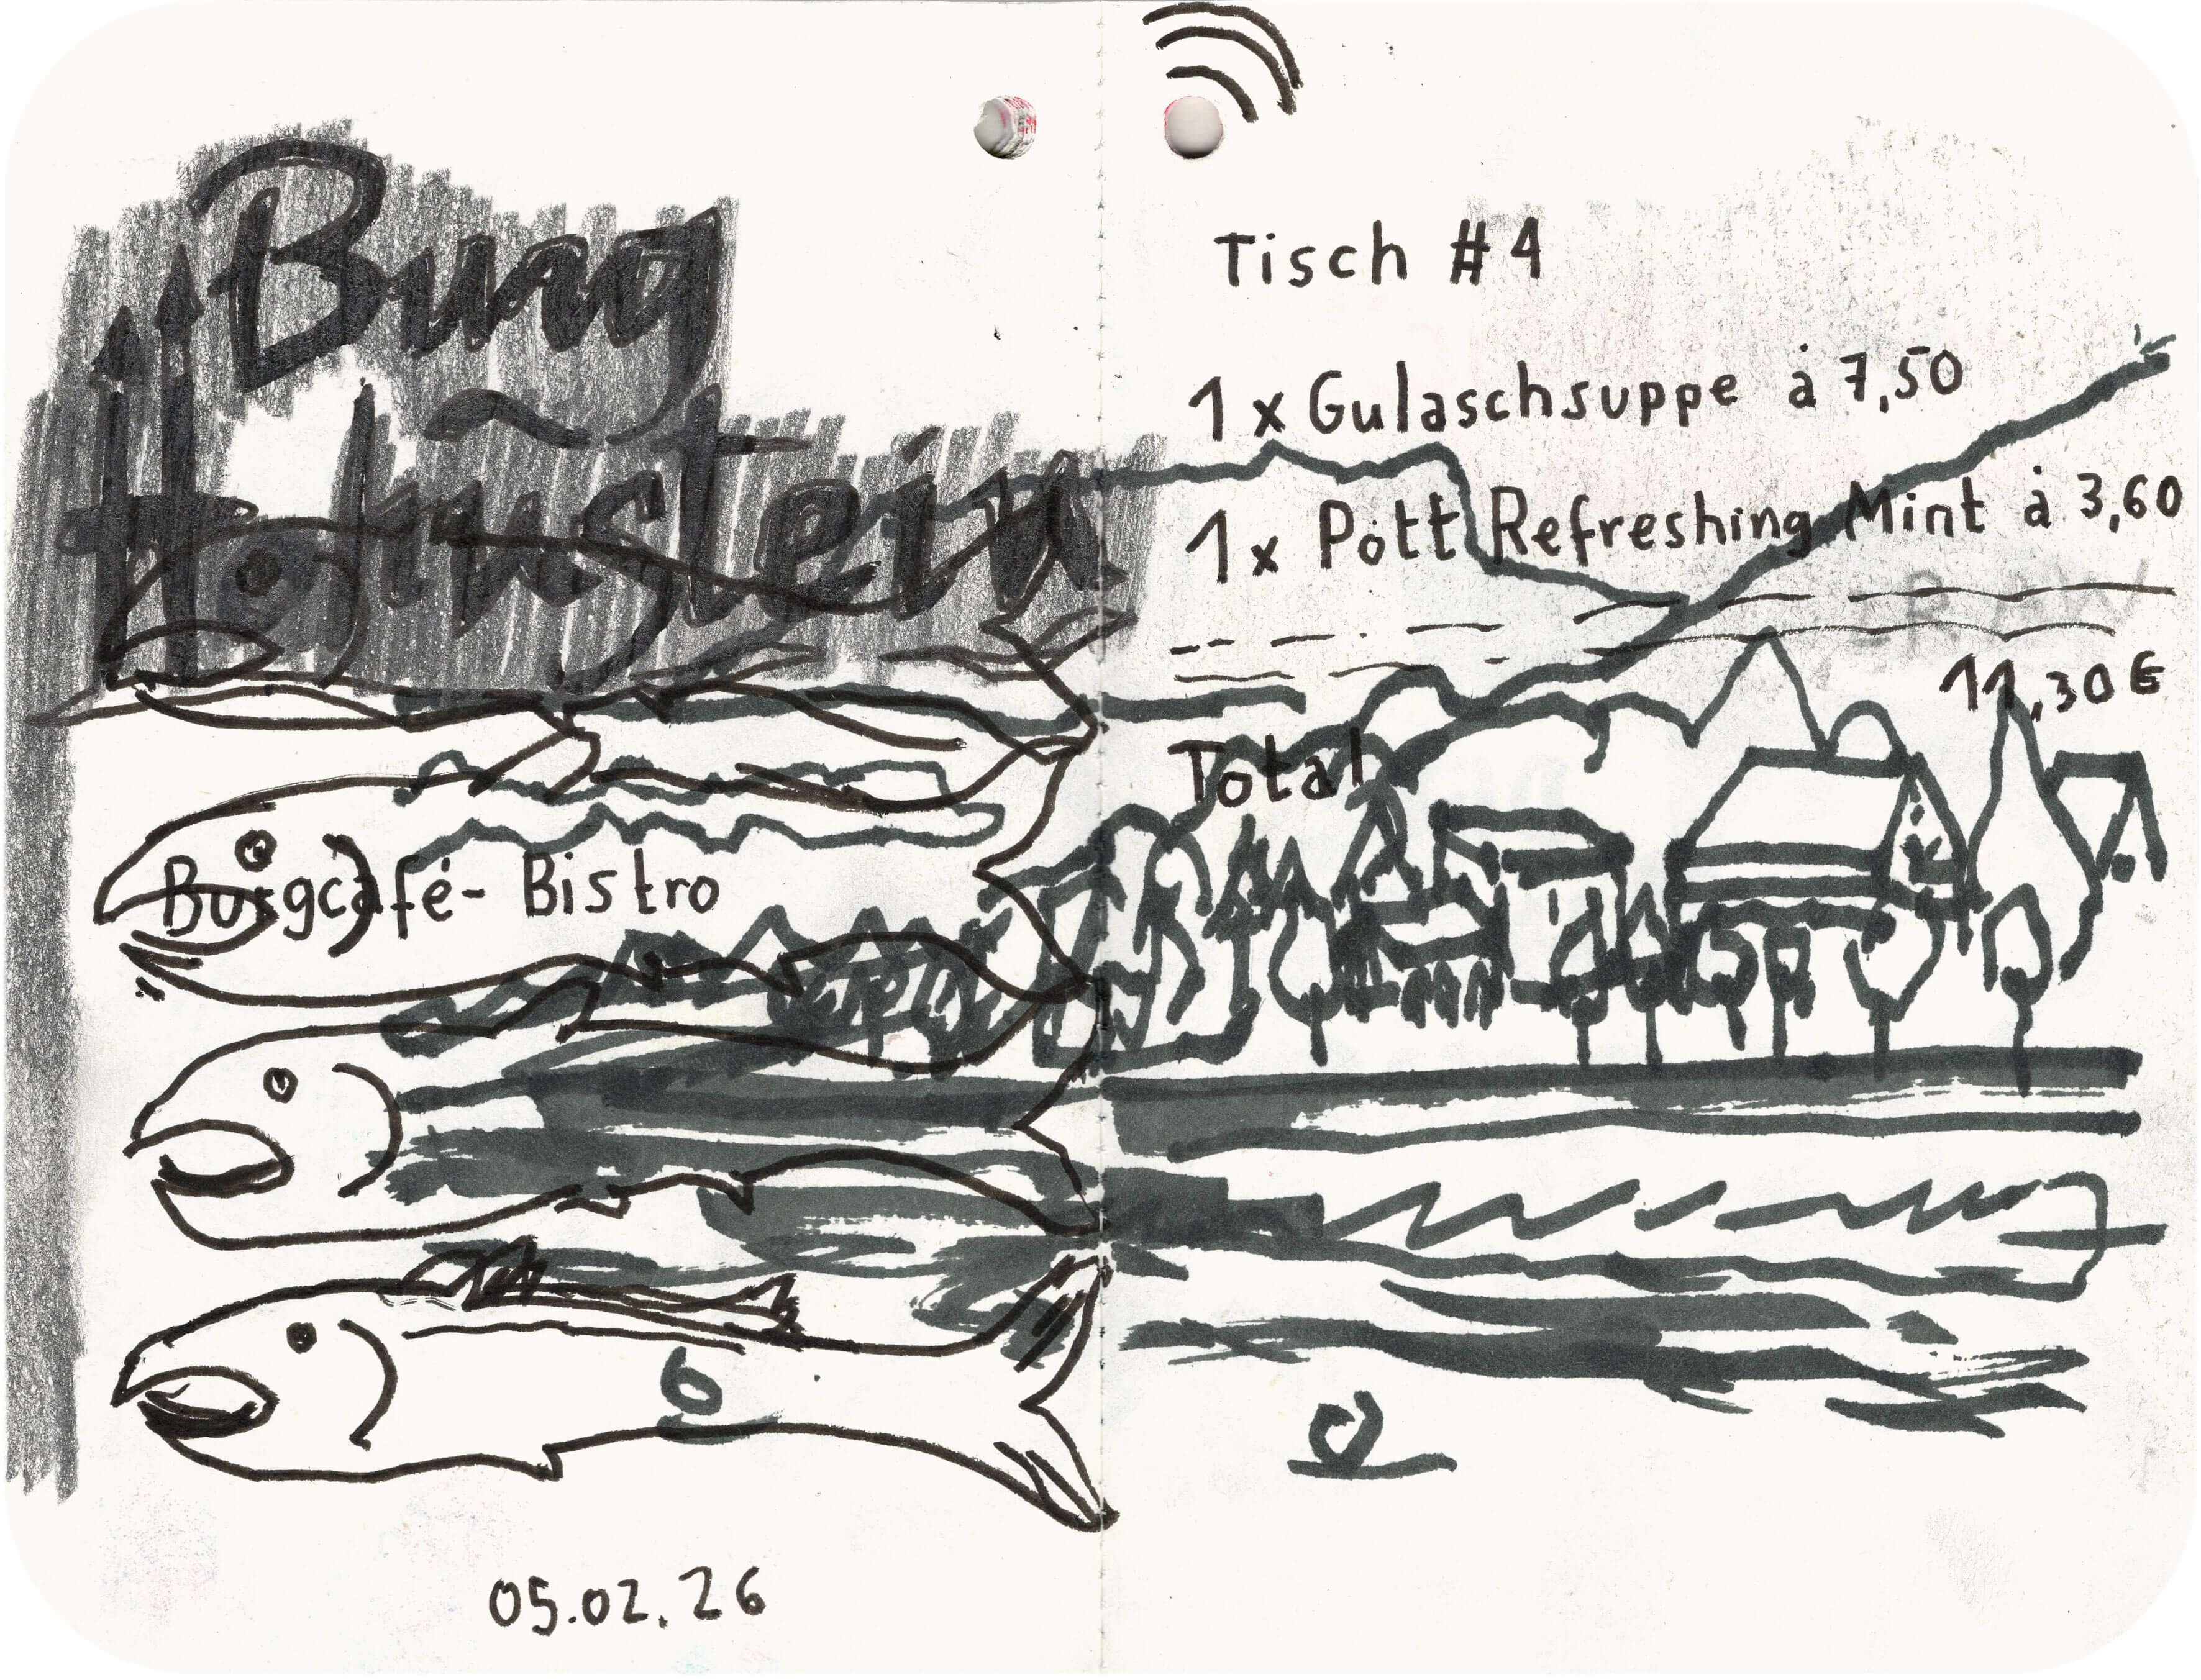 Burg
Hohnstein
Burgcafé-Bistro
6
05.02.26
Tisch #4
1x Gulaschsuppe à 7,50
1x Pott Refreshing Mint à 3,60
11,30€
Total